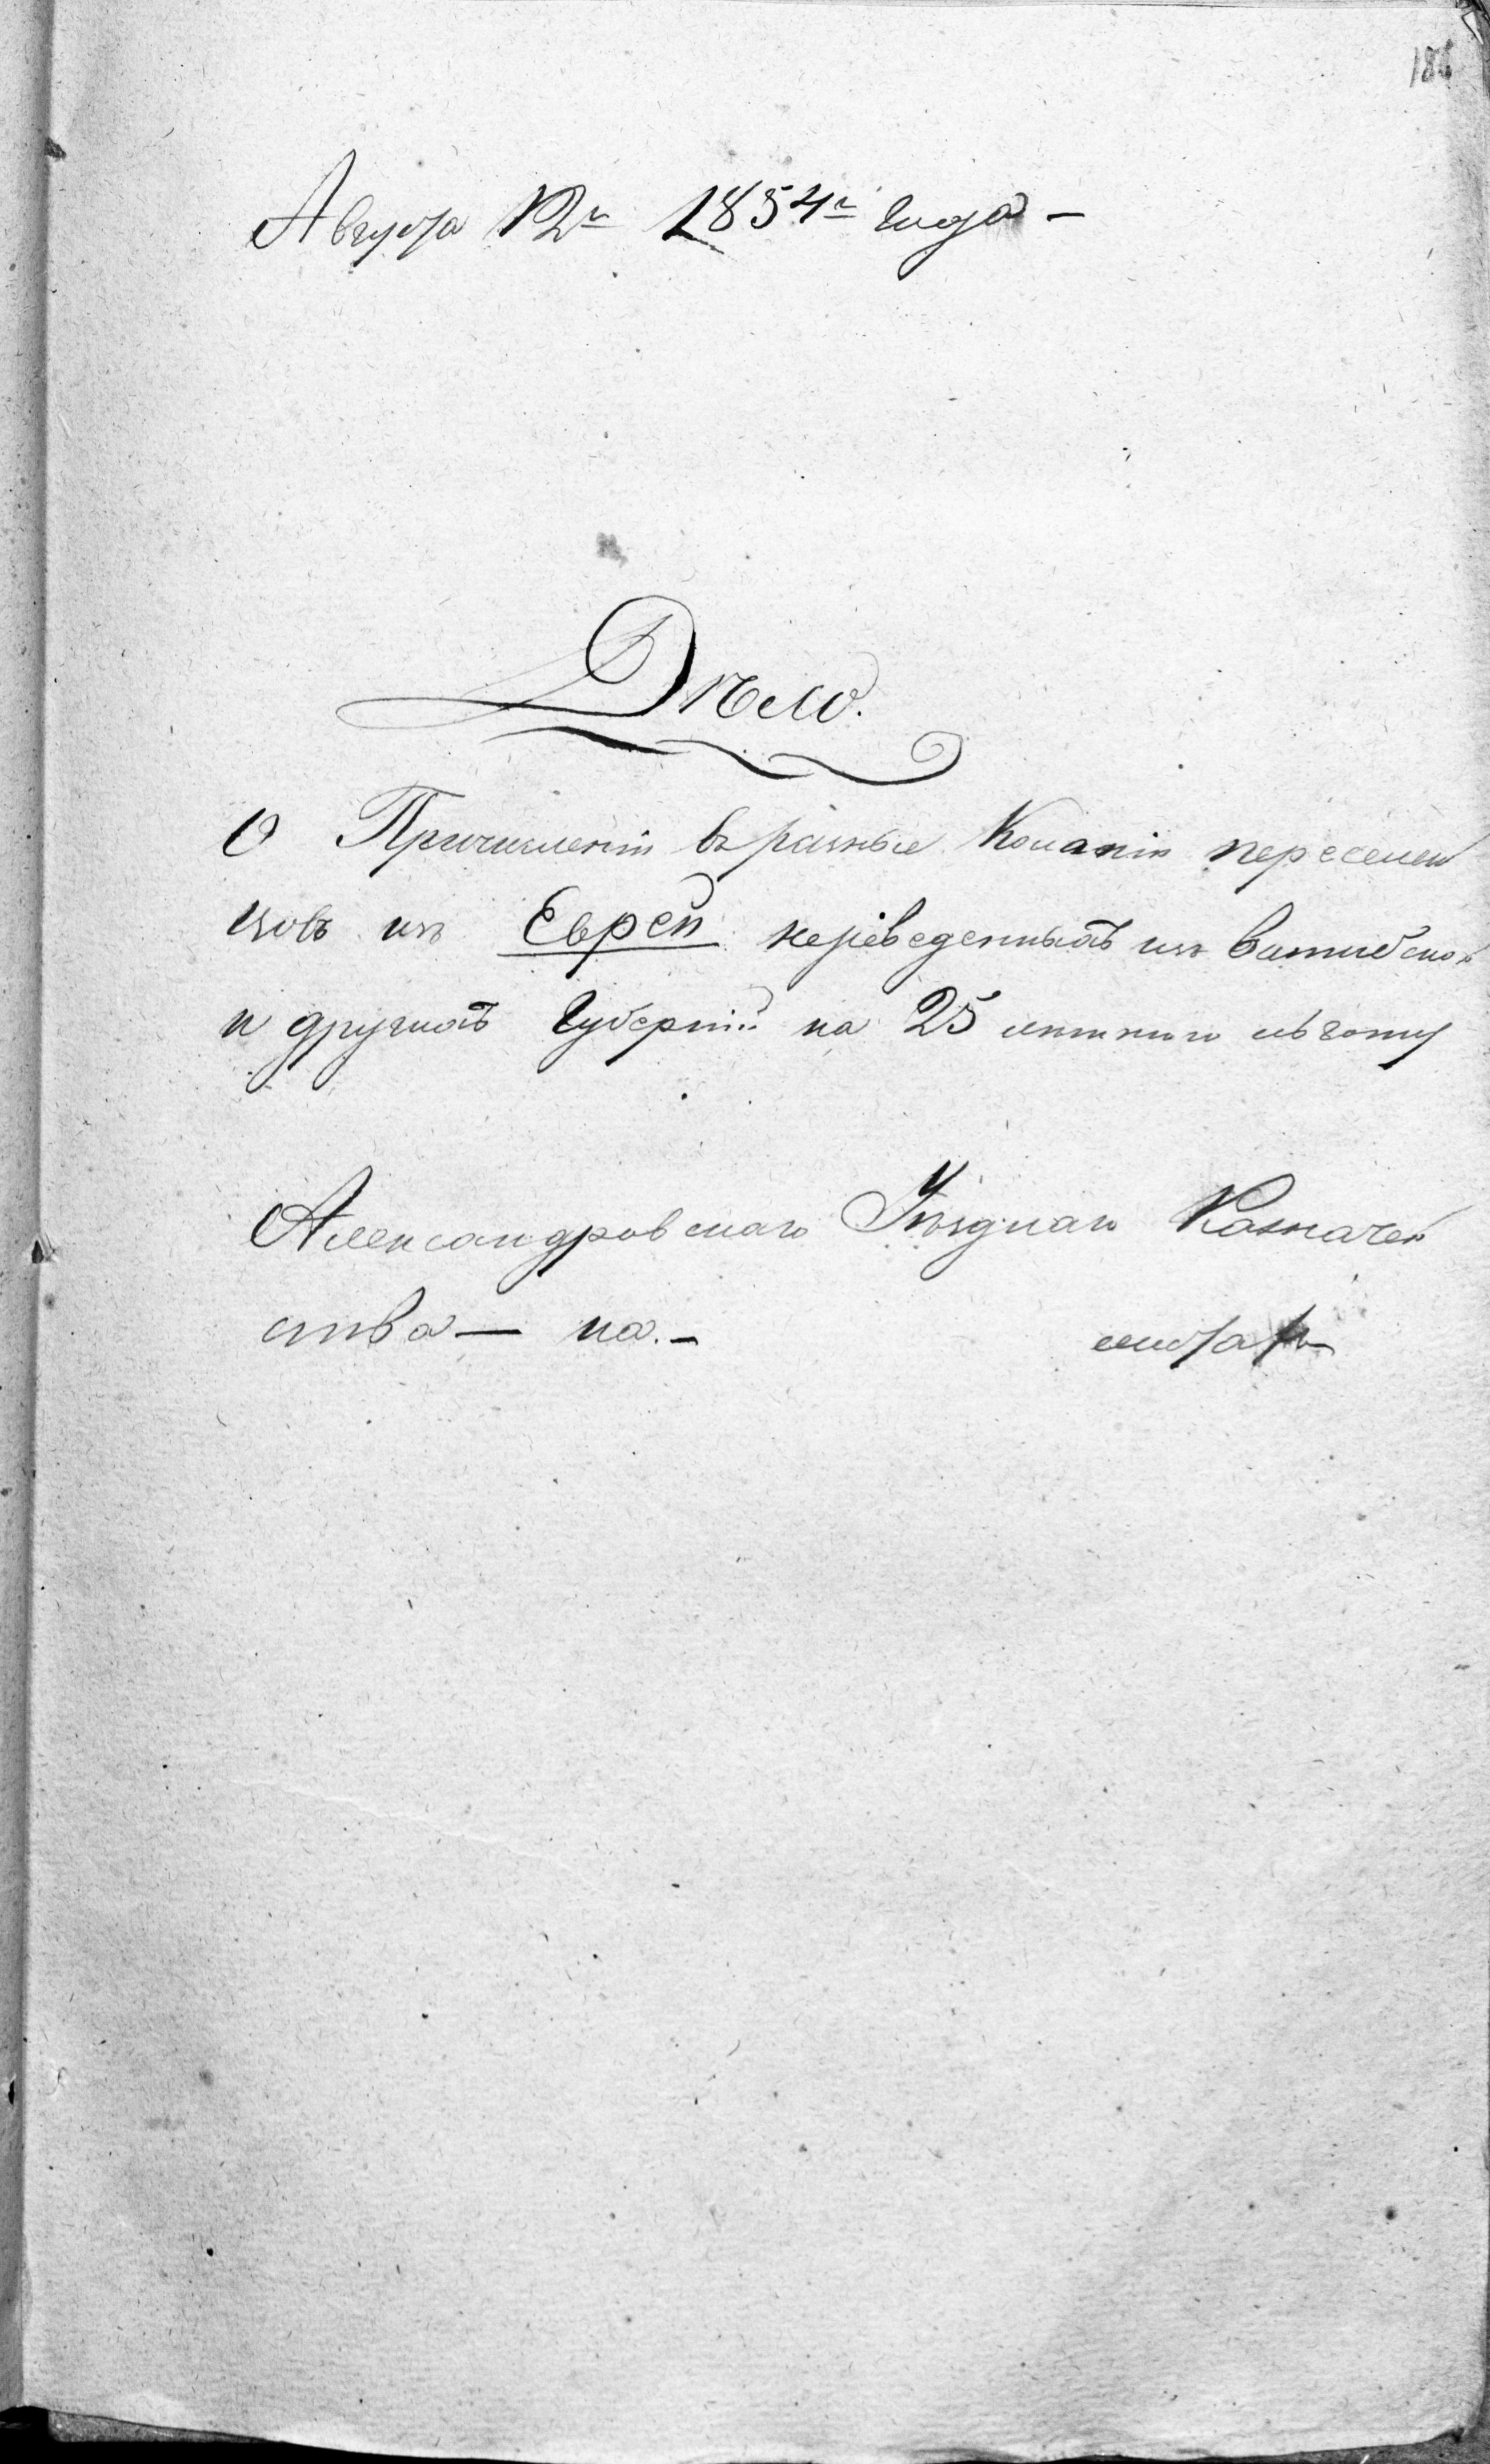 Августа 12г 1854г года —
Дѣло.
О Причисленіи въ разные Колоніи переселен
цовъ изъ Еврей переведенныхъ изъ Витибской
и другихъ Губерній на 25 лѣтнюю льготу
Александровскаго Уѣзднаго Казначей
ства — на. — листахъ